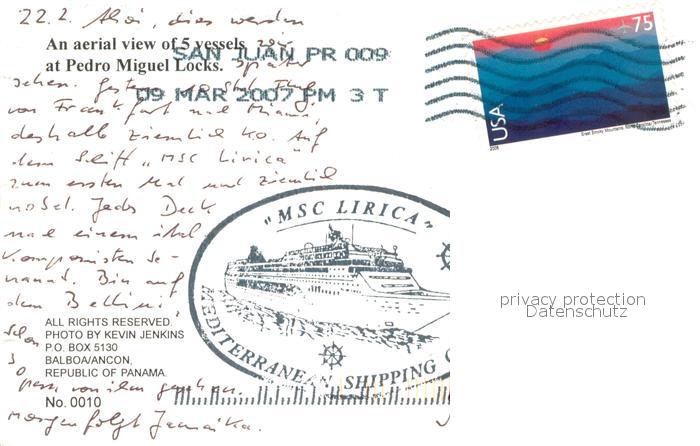 22.2. Ahoi, dies werden
75
An aerial view of 5 vessels
SAN JUAN PR 009
at Pedro Miguel Locks.
sehen. Gestern
09 MAR 2007 PM 3 T
von Frankfurt nach Miami,
deshalb ziemlich KO. Auf
dem Schiff „MSC Lirica"
zum ersten Mal und ziemlich
nobel. Jedes Deck
nach einem ital.
Komponisten be-
nannt. Bin auf
dem Bellini,
schon
3
Opern von ihm gesehen.
Morgen folgt Jamaika.
ALL RIGHTS RESERVED.
PHOTO BY KEVIN JENKINS
P.O. BOX 5130
BALBOA/ANCON,
REPUBLIC OF PANAMA.
No. 0010
"MSC LIRICA"
MEDITERRANEAN SHIPPING C
USA
2006
Great Smoky Mountains, North Carolina/Tennessee
privacy protection
Datenschutz